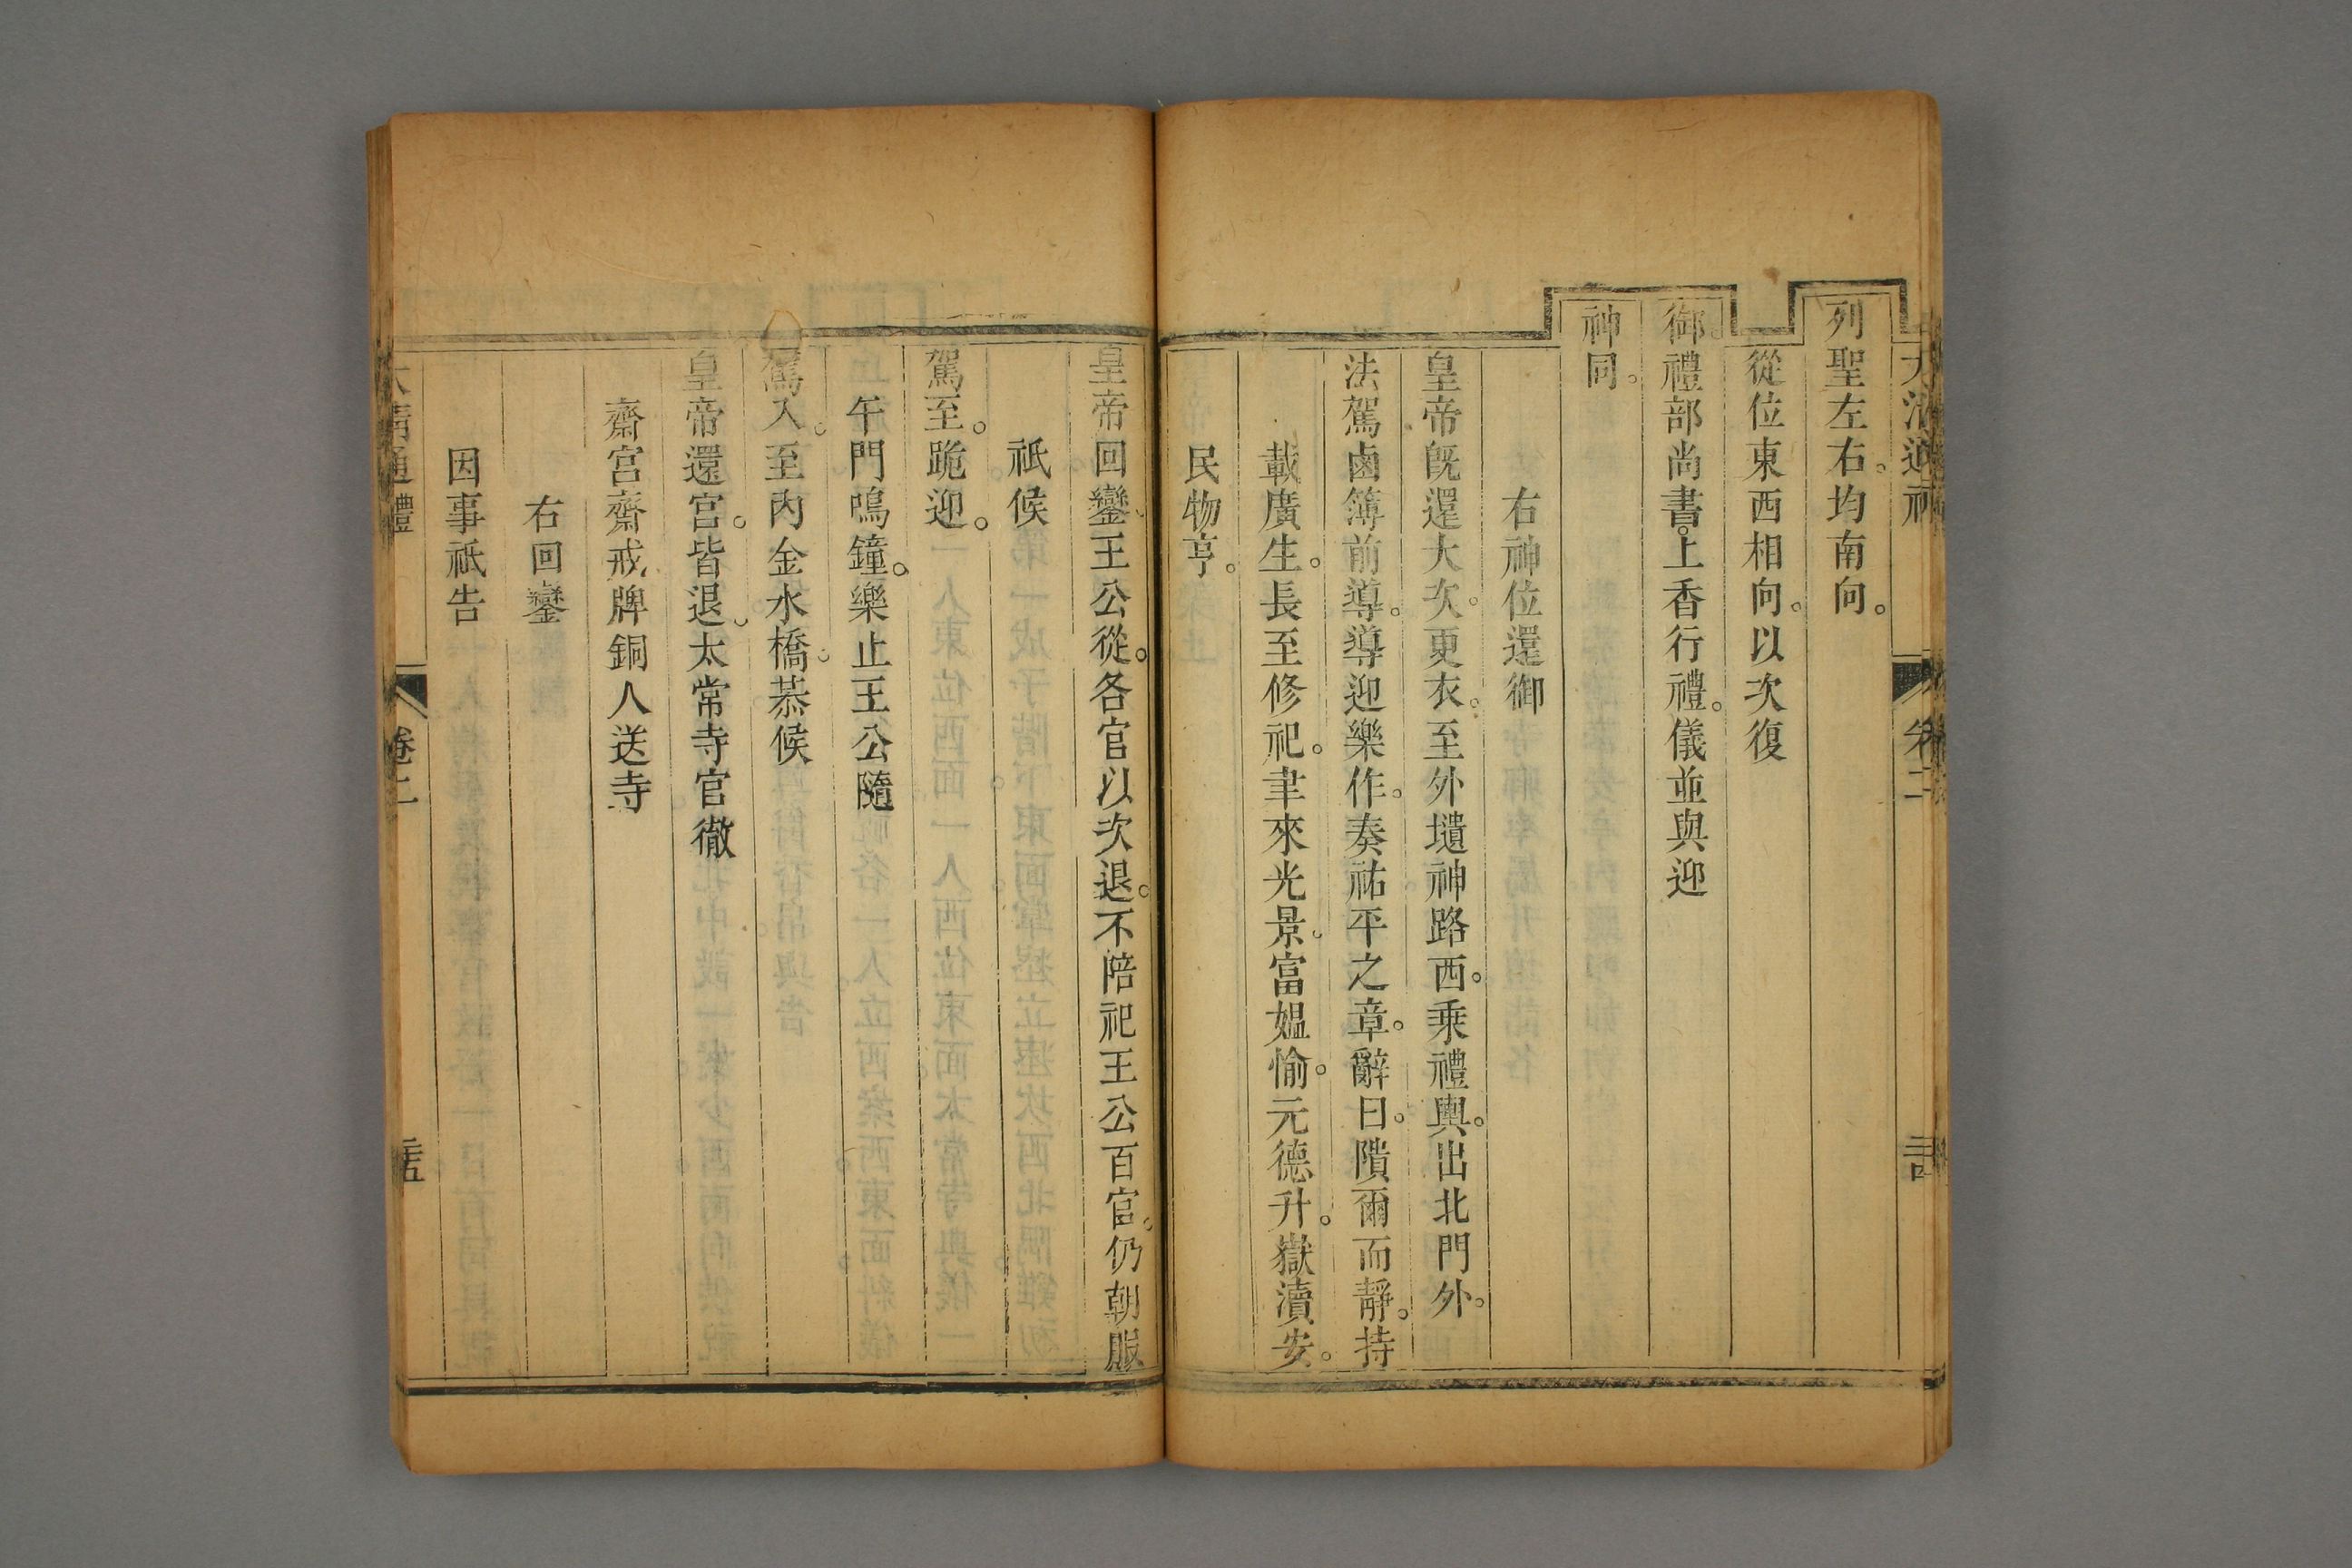 列聖左右。均南向。
從位東西相向。以次復
御。禮部尚書。上香行禮。儀並與迎
神同。
右神位還御
皇帝旣還大次。更衣。至外壝神路西。乘禮輿。出北門外。
法駕鹵簿前導。導迎樂作。奏祐平之章。辭曰。隤爾而靜。持
載廣生。長至修祀。聿來光景。富媼愉。元德升。嶽瀆安。
民物亨。
皇帝回鑾。王公從。各官以次退。不陪祀王公百官。仍朝服
祇候
駕至。跪迎。
午門鳴鐘。樂止王公隨
駕入。至內金水橋。恭候
皇帝還宮。皆退。太常寺官徹
齋宮齋戒牌銅人送寺
右回鑾
因事祇告
大清通禮
卷二